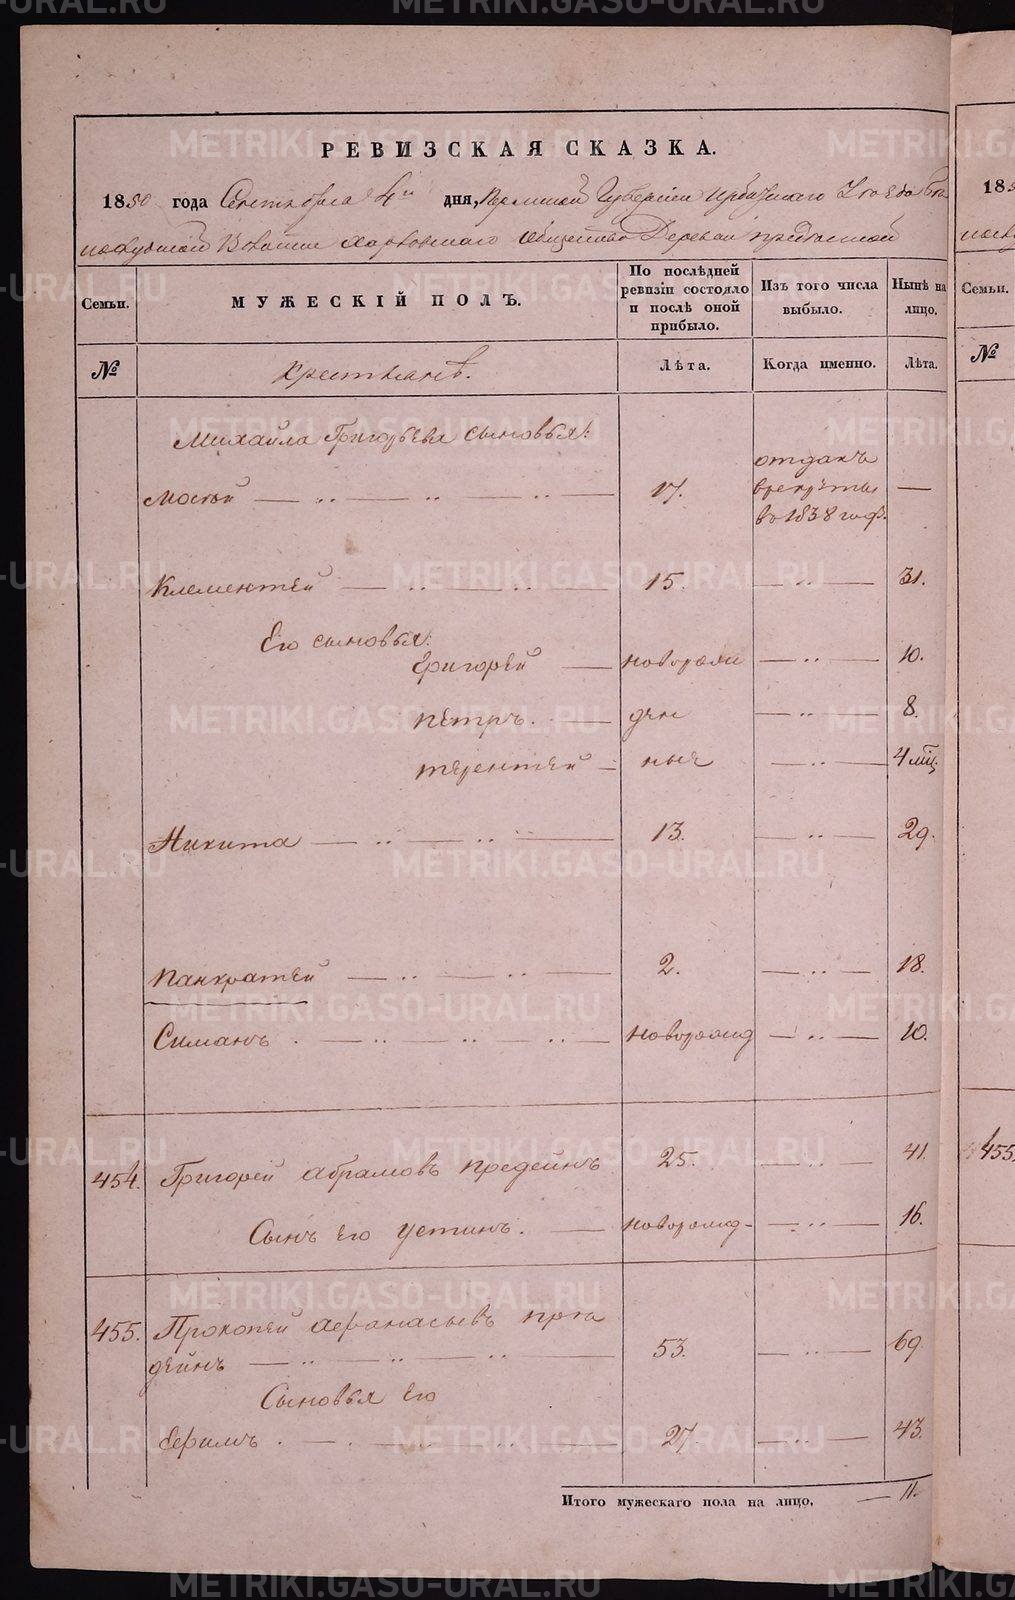 РЕВИЗСКАЯ СКАЗКА.
1850 года Сентября 4го дня, Пермской Губернии Ирбитскаго Уезда
Волости Харловскаго общества Деревни
Семьи. МУЖЕСКІЙ ПОЛЪ. По послѣдней ревизіи состояло и послѣ оной прибыло. Изъ того числа выбыло. Нынѣ на лицо. Семьи.
№ Крестьянъ. Лѣта. Когда именно. Лѣта. №
Михайла Григорьева сыновья:
Мосѣй 17. отданъ в рекруты в 1838 году. —
Клементей 15. 31.
Его сыновья:
Григорей новорож 10.
Петръ. ден 8.
терентей ные 4 мц.
Никита 13. 29.
Панкратей 2. 18.
Симанъ новорожд 10.
454. Григорей Абрамовъ Предеинъ 25. 41.
Сынъ его Устинъ. новорожд- 16.
455. Прокопей Афанасьевъ Пре
деинъ 53. 69.
Сыновья его
Ефимъ 27. 43.
Итого мужескаго пола на лицо. — 11.
455.
METRIKI.GASO-URAL.RU